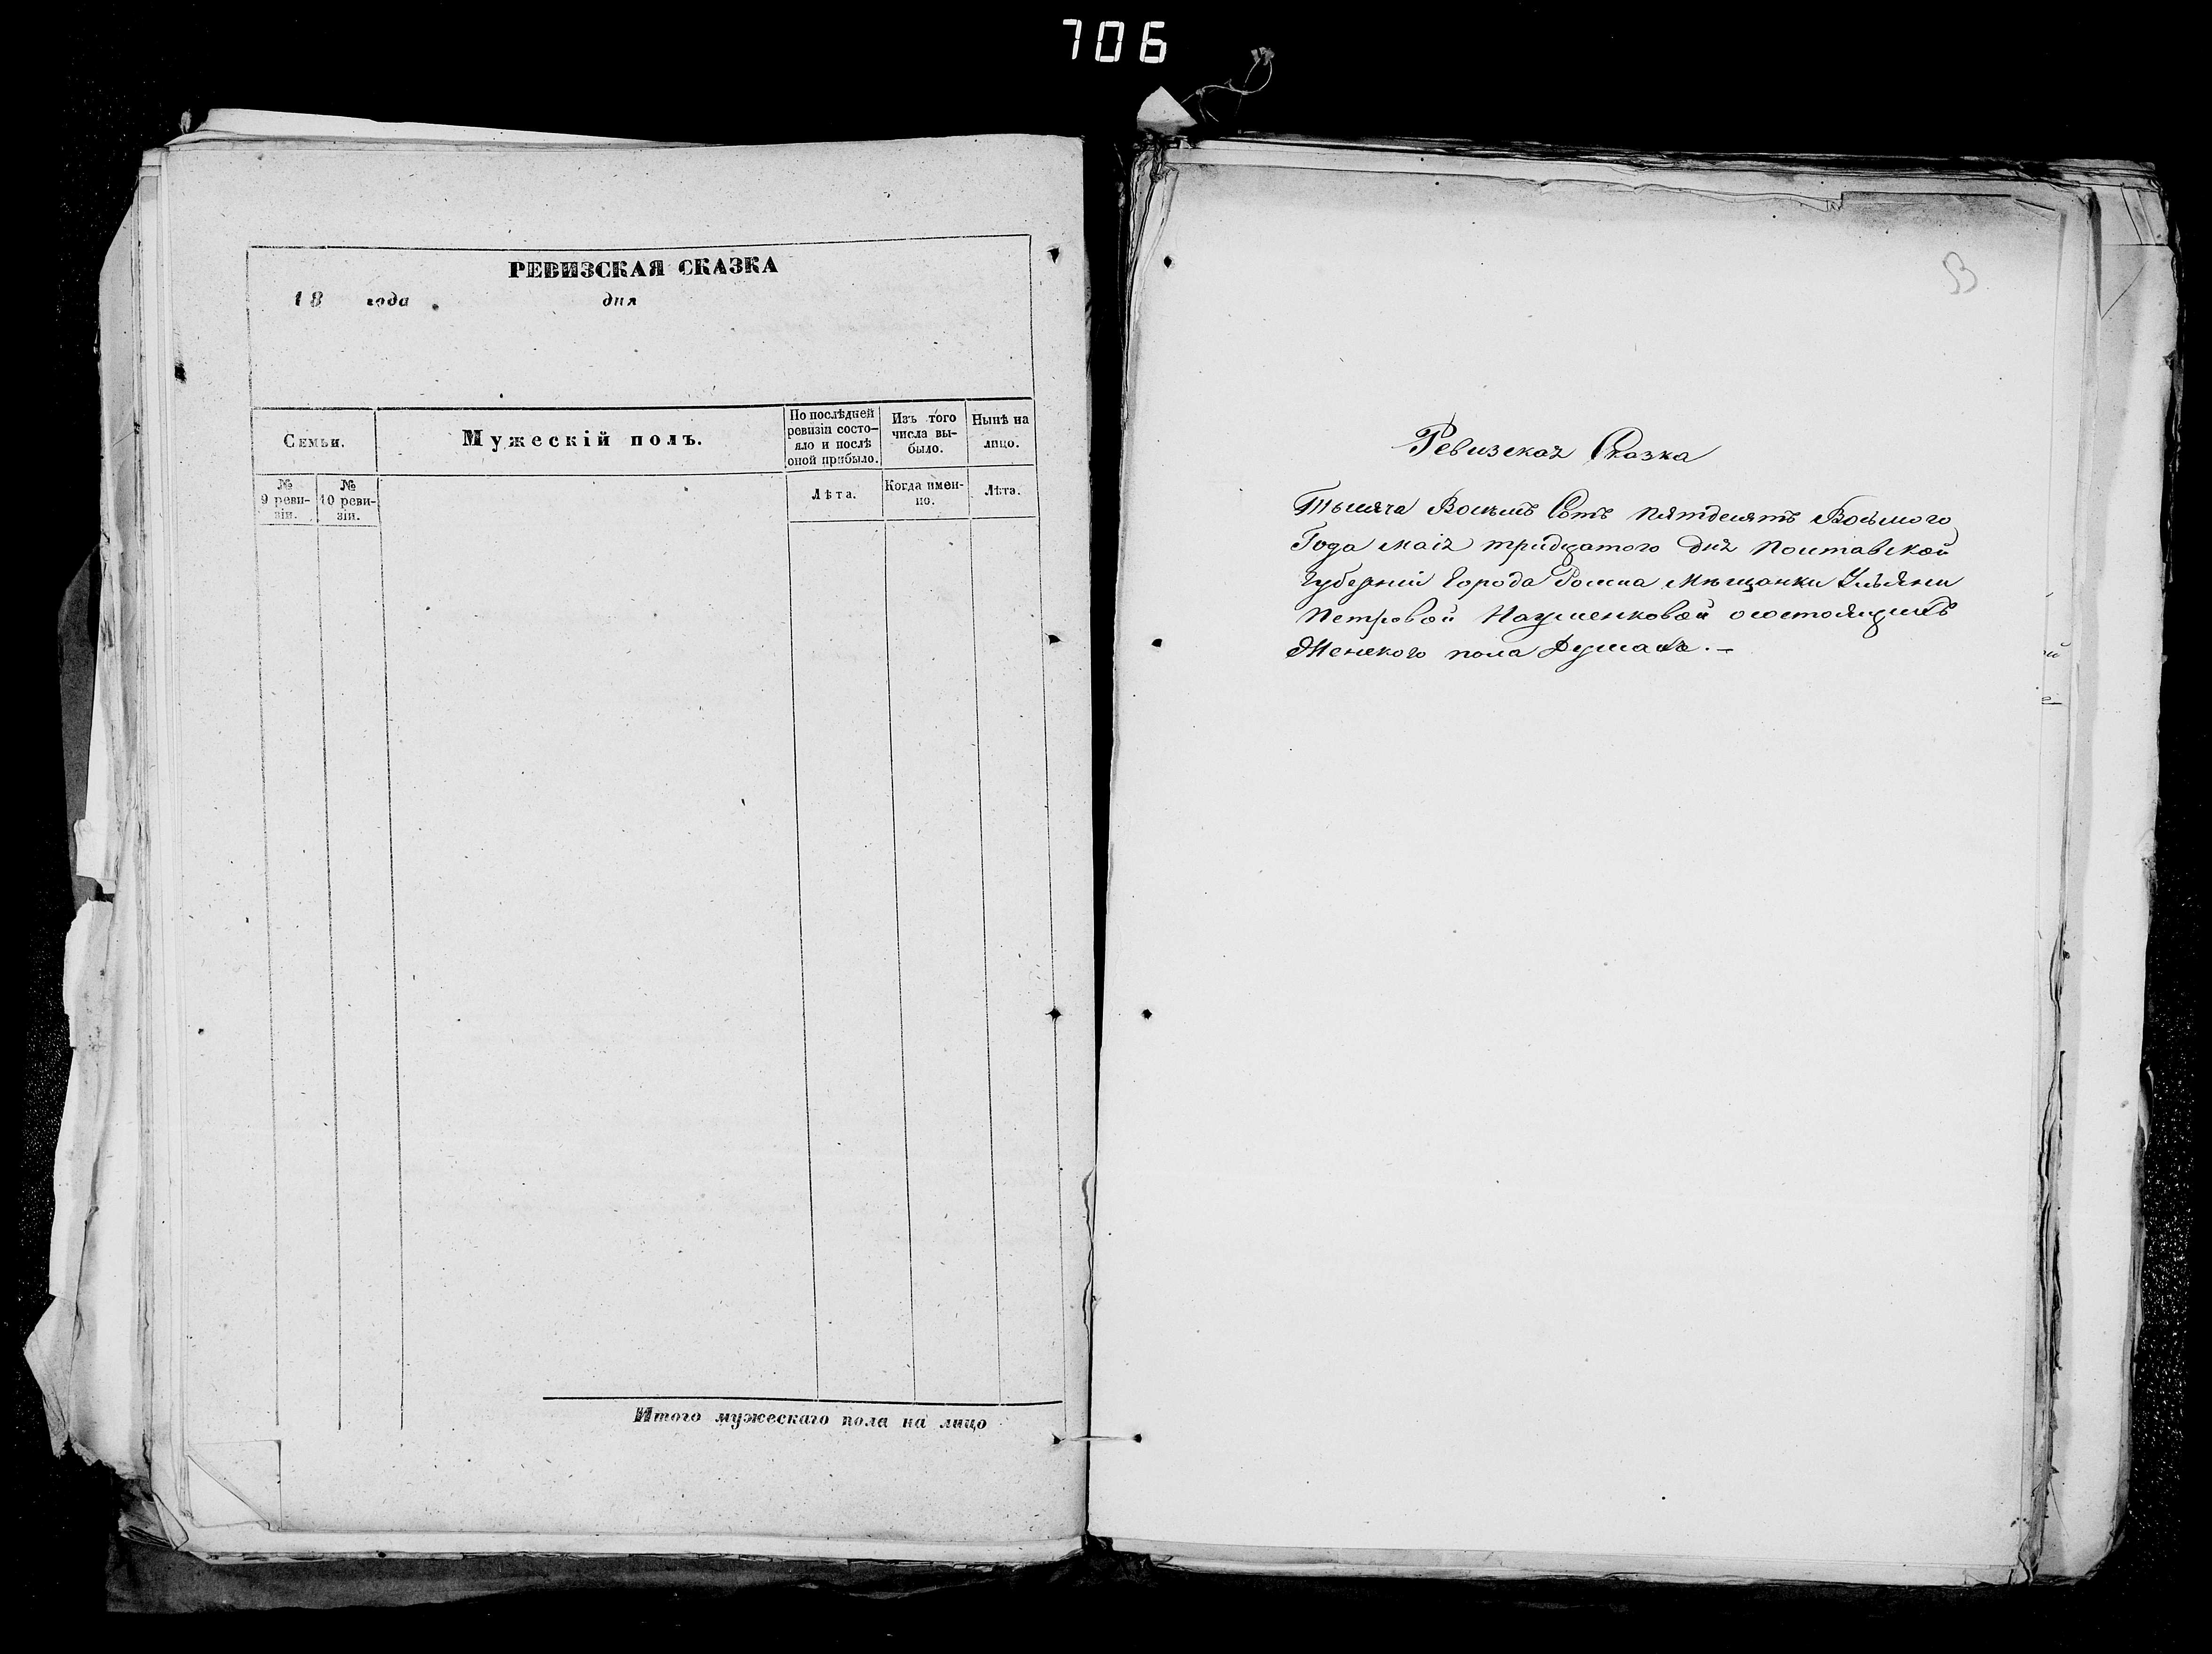 706
РЕВИЗСКАЯ СКАЗКА
18 года дня
Семьи.
Мужескій полъ.
По послѣдней
ревизіи состо-
яло и послѣ
оной прибыло.
Изъ того
числа вы-
было.
Нынѣ на
лицо.
№
9 реви-
зіи.
№
10 реви-
зіи.
Лѣта.
Когда имен-
но.
Лѣта.
Итого мужескаго пола на лицо
Ревизская Сказка
Тысяча Восемь Сотъ пятдесятъ Восьмого
Года маія тридцатого дня Полтавской
Губерніи Города Ромна Мѣщанки Ульяни
Петровой Науменковой осостоящихъ
Женского пола Душахъ. —